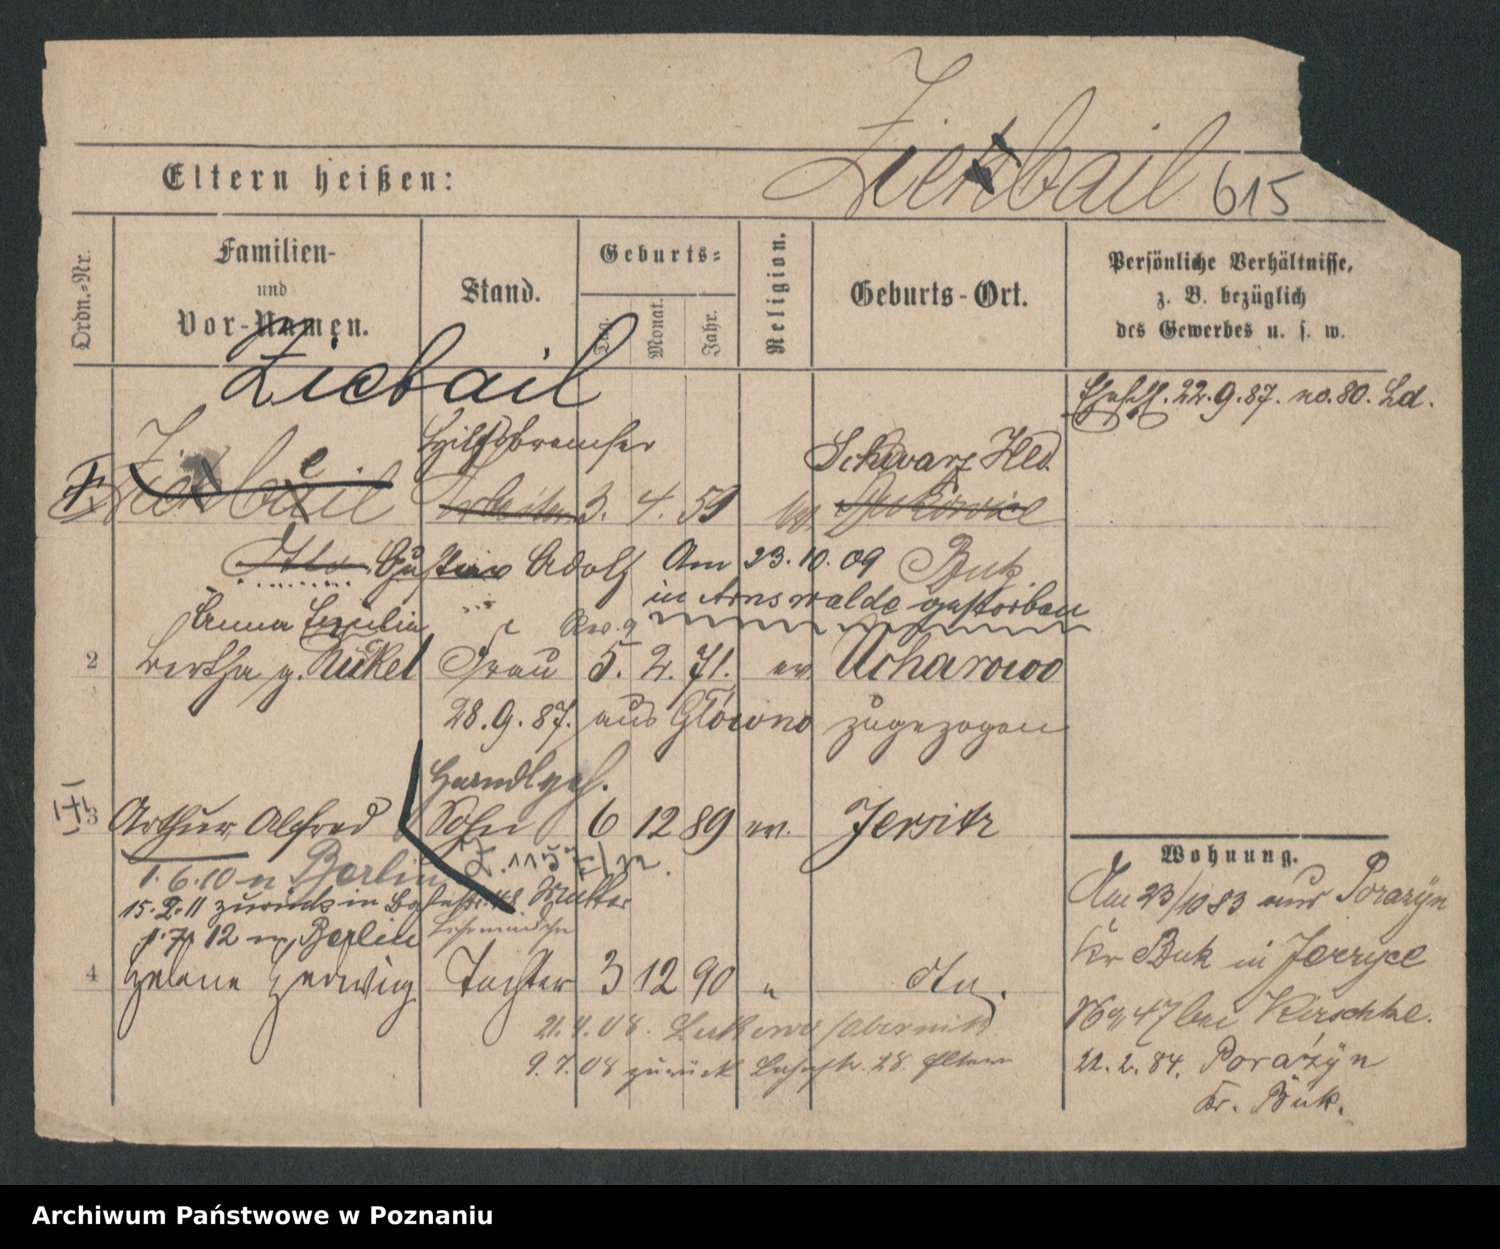 Zierbail 615
Eltern heißen:
Ordn.=Nr.
Familien-
und
Vor-Namen.
Stand.
Geburts=
Tag.
Monat.
Jahr.
Religion.
Geburts-Ort.
Persönliche Verhältnisse,
z. B. bezüglich
des Gewerbes u. s. w.
Ziebail
22.9.87. no. 80. Ld.
Hilfsbremser Schwarz Hld.
Arbeiter 3. 4. 59
Otto Gustav Adolf Am 23.10.09 Buk
in Arnswalde gestorben
Anna Emilie
2 Bertha g. Nickel Frau 5. 2. 71. ev. Ucharowo
28.9.87. aus Głowno zugezogen
Handlgeh.
3 Arthur Alfred Sohn 6 12 89 ev. Jersitz
1.6.10 n Berlin
15.2.11 zurück in Mutter
1.7. 12 n. Berlin
4 Helene Hedwig Tochter 3 12 90 " dto.
21.4.08. /Obornik
9.7.08 zurück 28. Eltern
Wohnung.
Am 23/10 83 aus Porażyn
Kr Buk in Jerzyce
No 47 bei Kirschke.
22.2.84. Porażyn
Kr. Buk.
Archiwum Państwowe w Poznaniu